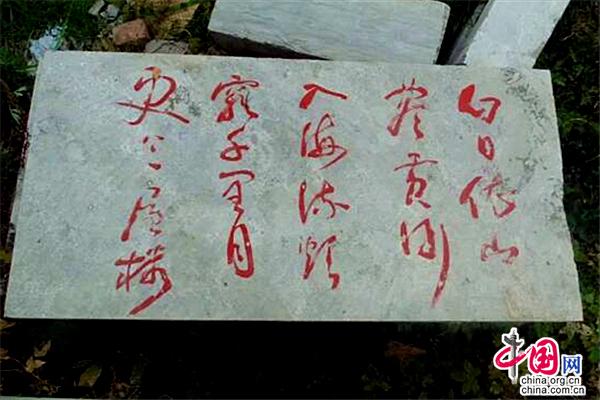 白日依山
尽黄河
入海流欲
穷千里目
更上一层楼
中国网
china.org.cn
china.com.cn